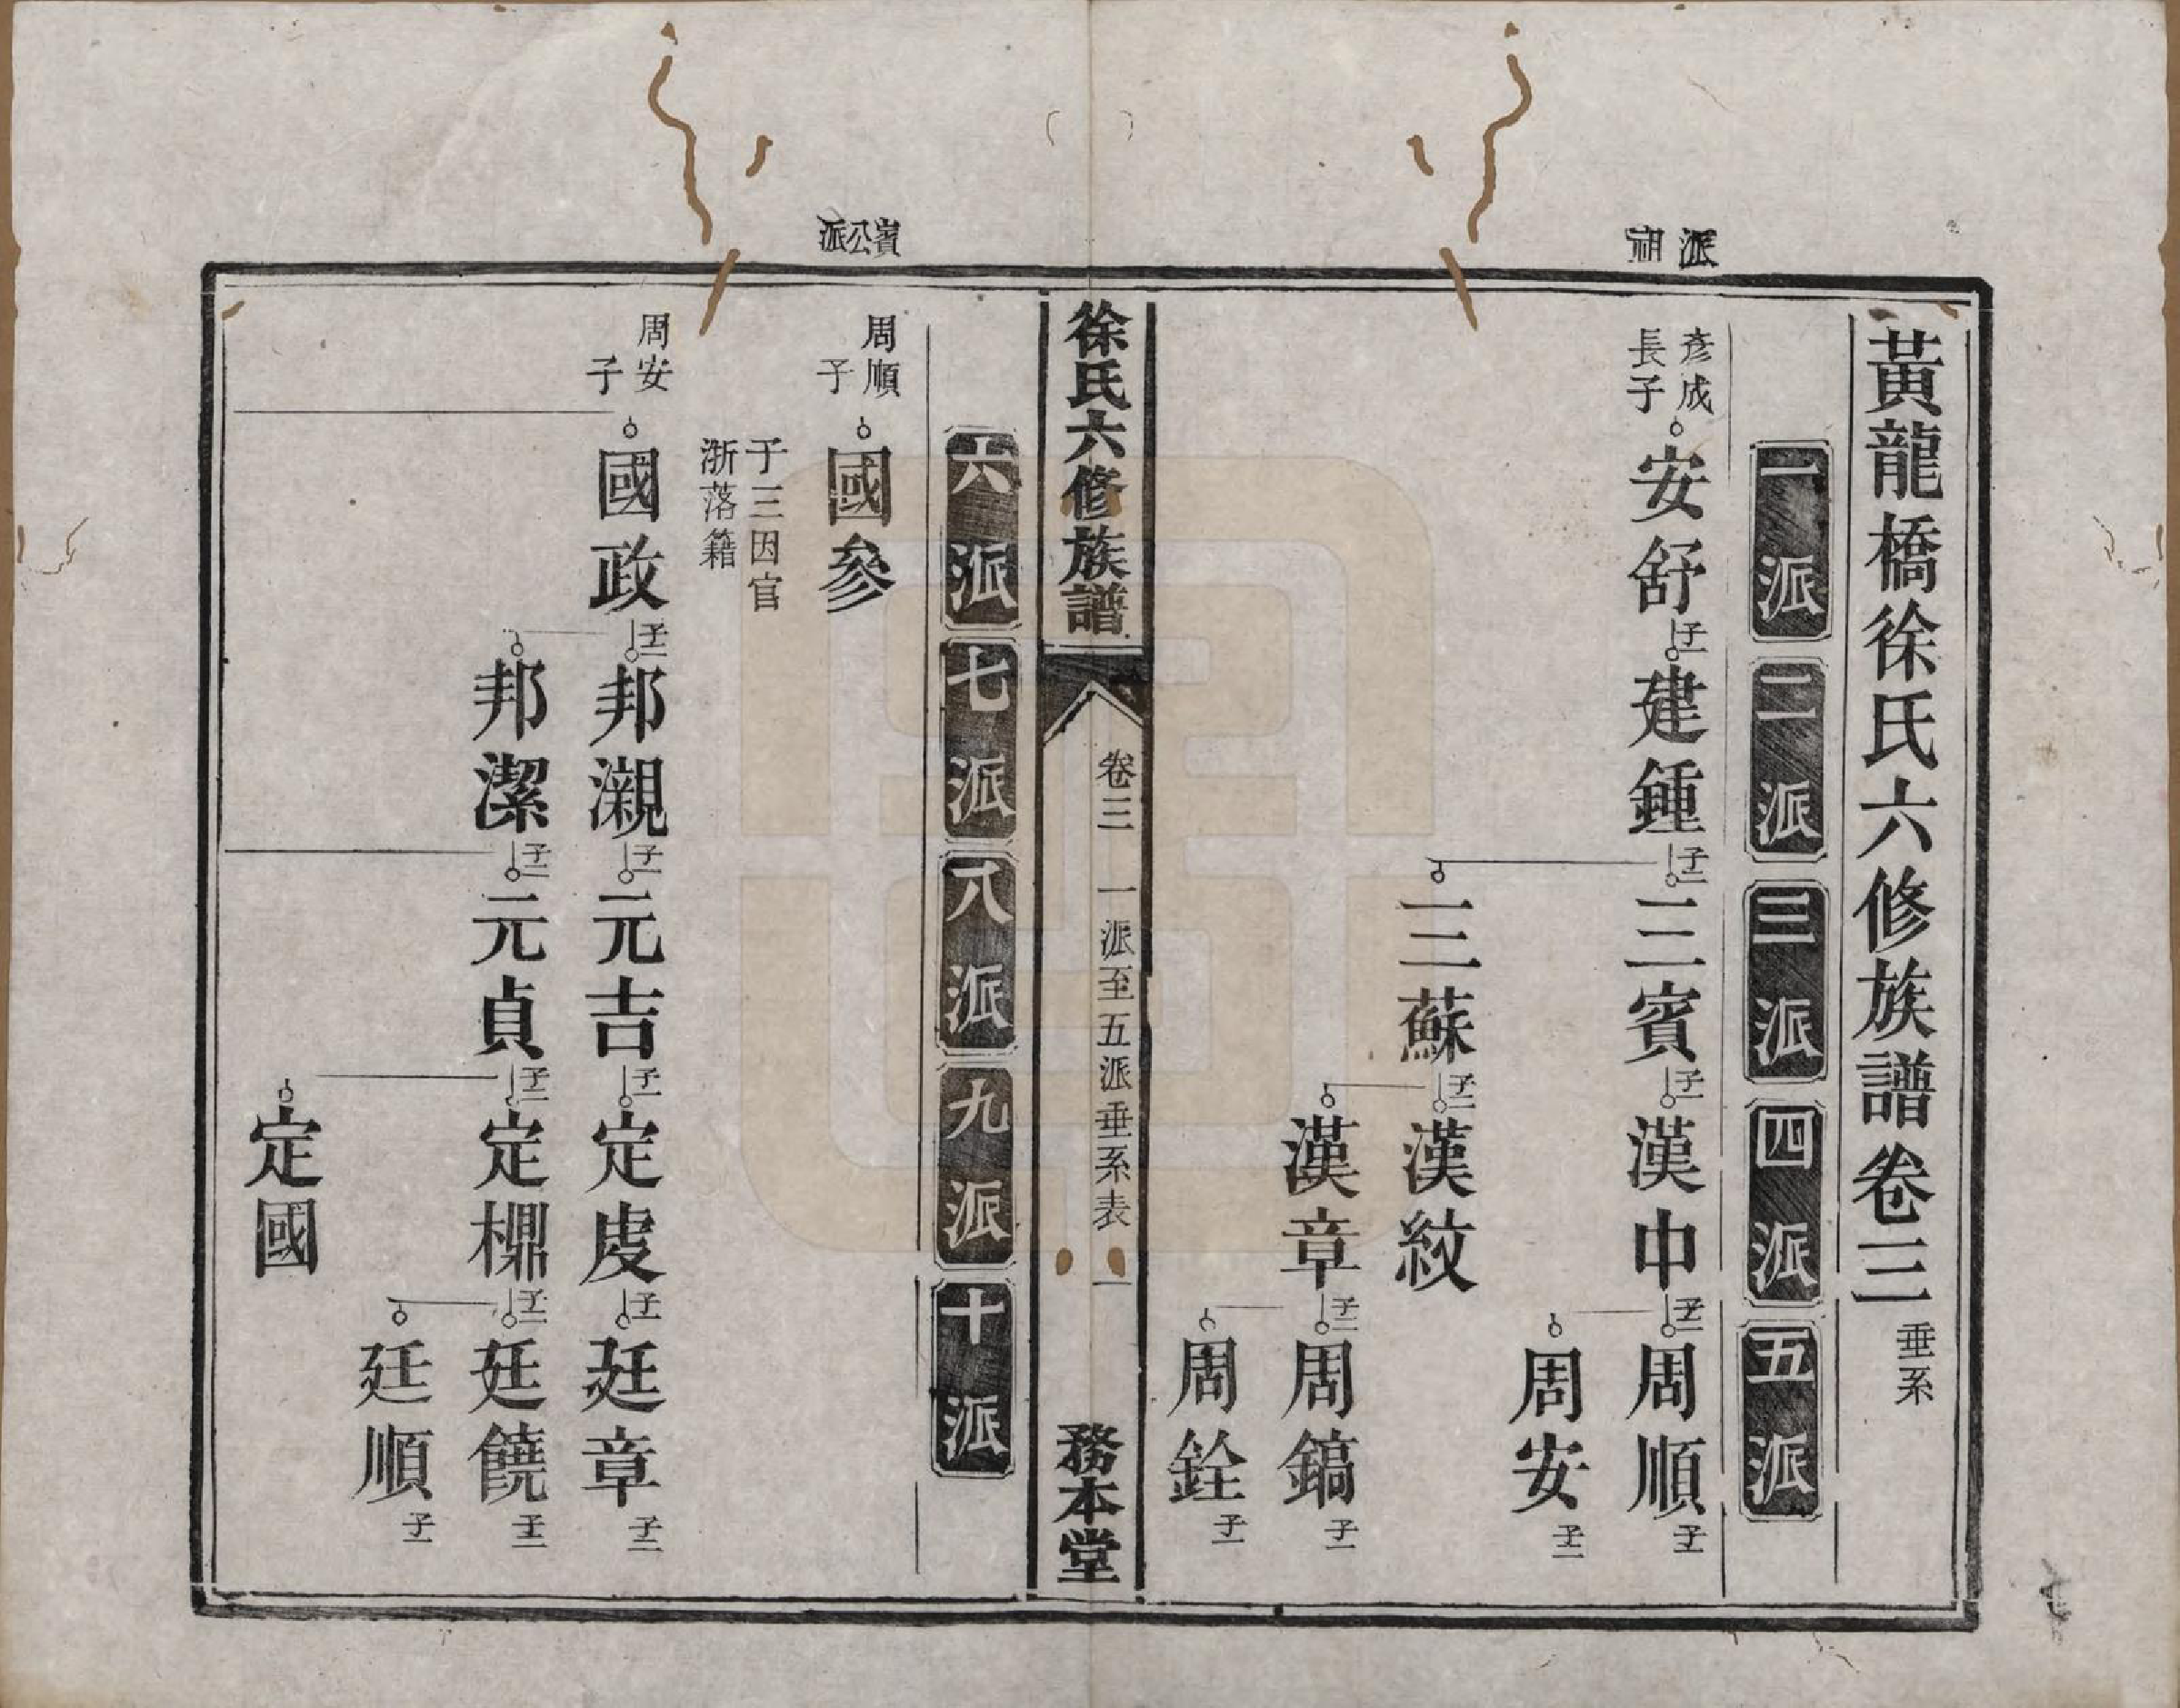 黃龍橋徐氏六修族譜卷三 垂系
一派 二派 三派 四派 五派
派祖
彥成長子 安舒 子一 建鍾 子二 三賓 子一 漢中 子二 周順 子一
周安 子二
三蘇 子二 漢紋
漢章 子二 周鎬 子一
周銓 子一
徐氏六修族譜 卷三 一派至五派垂系表 一 務本堂
六派 七派 八派 九派 十派
賓公派
周順子 國參
子三因官浙落籍
周安子 國政 子二 邦瀙 子一 元吉 子一 定虔 子一 廷章 子二
邦潔 子二 元貞 子二 定㯲 子二 廷饒 子三
廷順 子一
定國